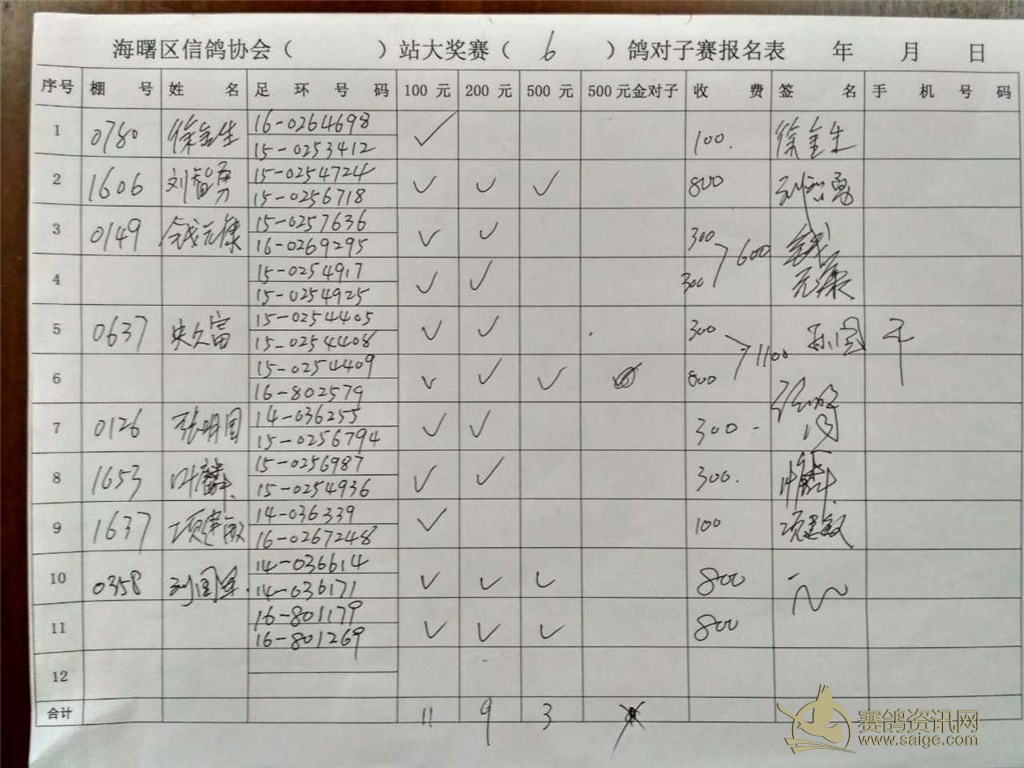 海曙区信鸽协会（ ）站大奖赛（ 6 ）鸽对子赛报名表 年 月 日
序号 棚号 姓名 足环号码 100元 200元 500元 500元金对子 收费 签名 手机号码
1 0780 徐金生 16-0264698 ✓ 100. 徐金生
15-0253412
2 1606 刘智勇 15-0254724 ✓ ✓ ✓ 800 刘智勇
15-0256718
3 0149 钱元康 15-0257636 ✓ ✓ 300 600 钱元康
16-0269295
4 15-0254917 ✓ ✓ 300
15-0254925
5 0637 富 15-0254405 ✓ ✓ 300 1100
15-0254408
6 15-0254409 ✓ ✓ ✓ 800
16-802579
7 0126 张明国 14-036255 ✓ ✓ 300-
15-0256794
8 1653 叶麟 15-0256987 ✓ ✓ 300. 叶麟
15-0254936
9 1637 项建敏 14-036339 ✓ 100 项建敏
16-0267248
10 0358 刘国 14-036614 ✓ ✓ ✓ 800
14-036171
11 16-801179 ✓ ✓ ✓ 800
16-801269
12
合计 11 9 3
赛鸽资讯网
www.saige.com